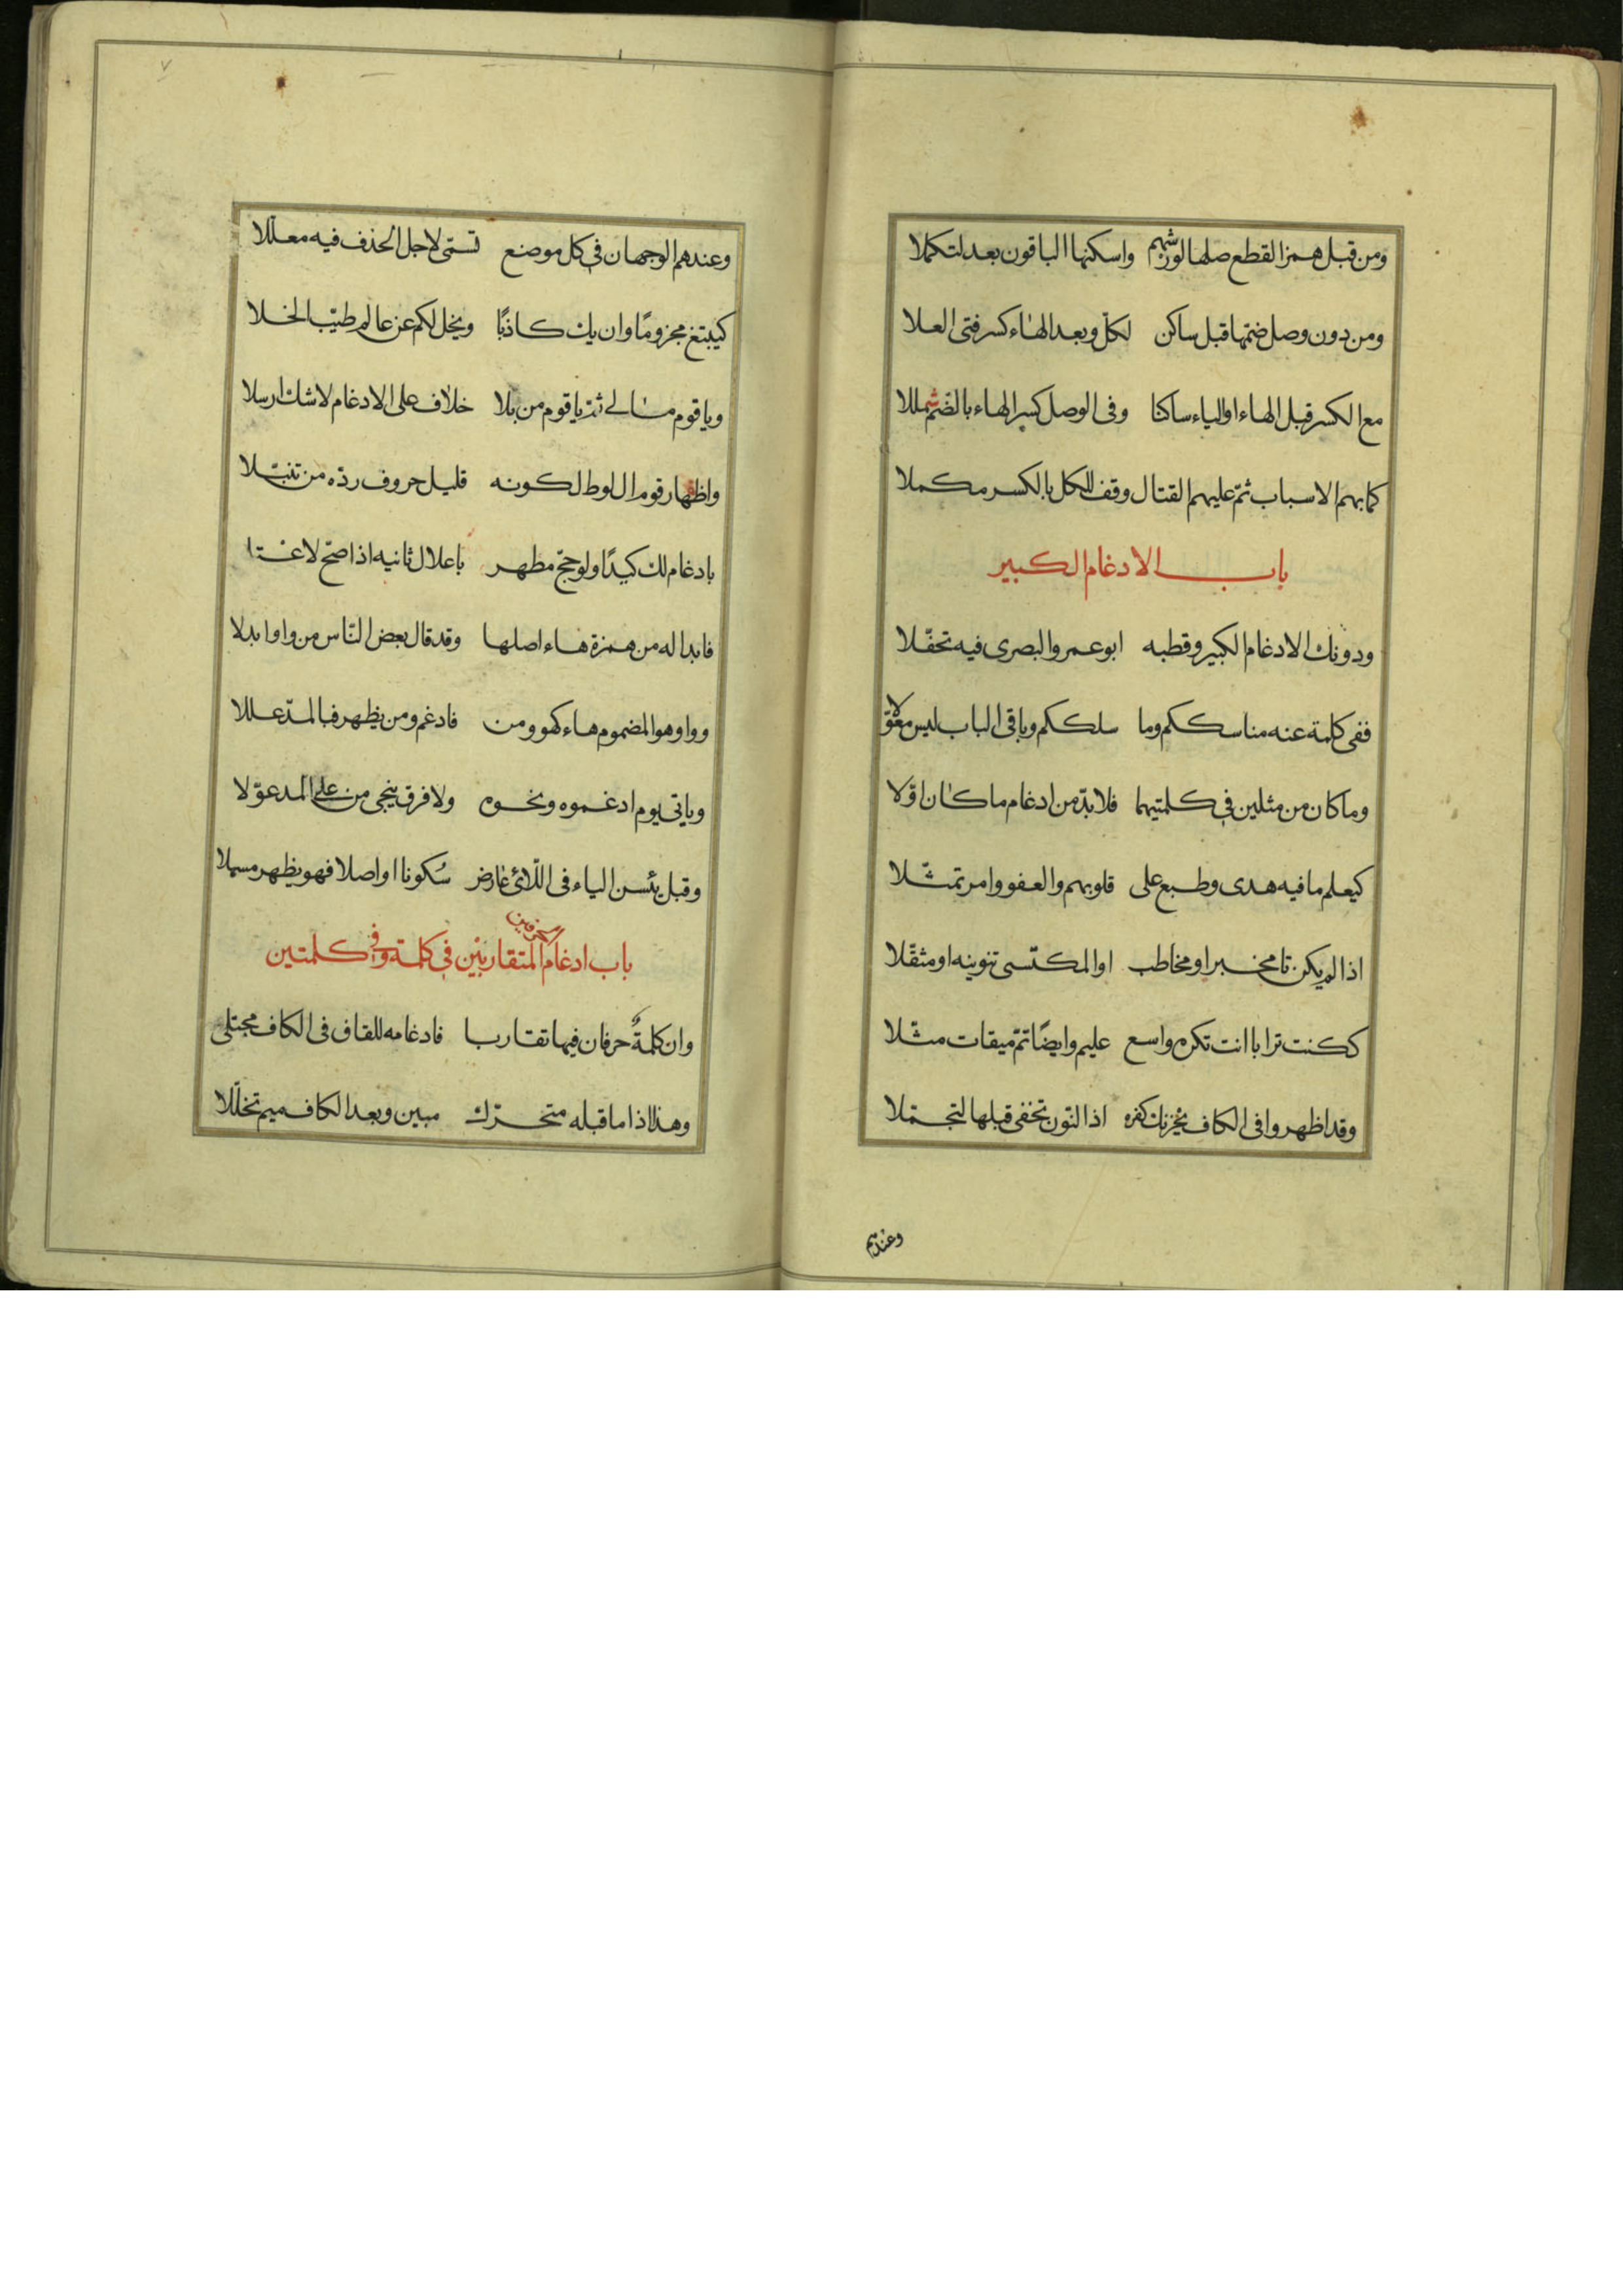 ومن قبل همز القطع صلها لورشهم واسكنها الباقون بعد لتكملا
ومن دون وصل ضمها قبل ساكن لكل وبعد الهاء كسر فتى العلا
مع الكسر قبل الهاء او الياء ساكنا وفى الوصل كسر الهاء بالضم شمللا
كما بهم الاسباب ثم عليهم القتال وقف للكل بالكسر مكملا
باب الادغام الكبير
ودونك الادغام الكبير وقطبه ابو عمرو البصرى فيه تحفّلا
ففى كلمة عنه مناسككم وما سلككم وباقى الباب ليس معوّلا
وما كان من مثلين فى كلمتيهما فلا بدّ من ادغام ما كان اوّلا
كيعلم ما فيه هدى وطبع على قلوبهم والعفو وامر تمثّلا
اذا لم يكن تا مخبر او مخاطب او المكتسى تنوينه او مثقّلا
ككنت ترابا انت تكره واسع عليم وايضًا تمّ ميقات مثّلا
وقد اظهروا فى الكاف يحزنك كفره اذ النّون تخفى قبلها لتجمّلا
وعندهم
٧
وعندهم الوجهان فى كل موضع تسمّى لاجل الحذف فيه معلّلا
كيبتغ مجزومًا وان يك كاذبًا ويخل لكم عن عالم طيّب الخلا
ويا قوم مالى ثمّ يا قوم من بلا خلاف على الادغام لا شك ارسلا
واظهار قوم ال لوط لكونه قليل حروف ردّه من تنبّلا
بادغام لك كيدًا ولو حجّ مظهر باعلال ثانيه اذا صحّ لاعتلا
فابداله من همزة هاء اصلها وقد قال بعض النّاس من واو ابدلا
وواو هو المضموم هاء كهو ومن فادغم ومن يظهر فبالمدّ عللا
وياتى يوم ادغموه ونحوه ولا فرق ينجى من على المد عوّلا
وقبل يئسن الياء فى اللّائ عارض سُكونا او اصلا فهو يظهر مسهلا
باب ادغام الحرفين المتقاربين فى كلمة وفى كلمتين
وان كلمةٌ حرفان فيها تقاربا فادغامه للقاف فى الكاف مجتلى
وهذا اذا ما قبله متحرّك مبين وبعد الكاف ميم تخلّلا